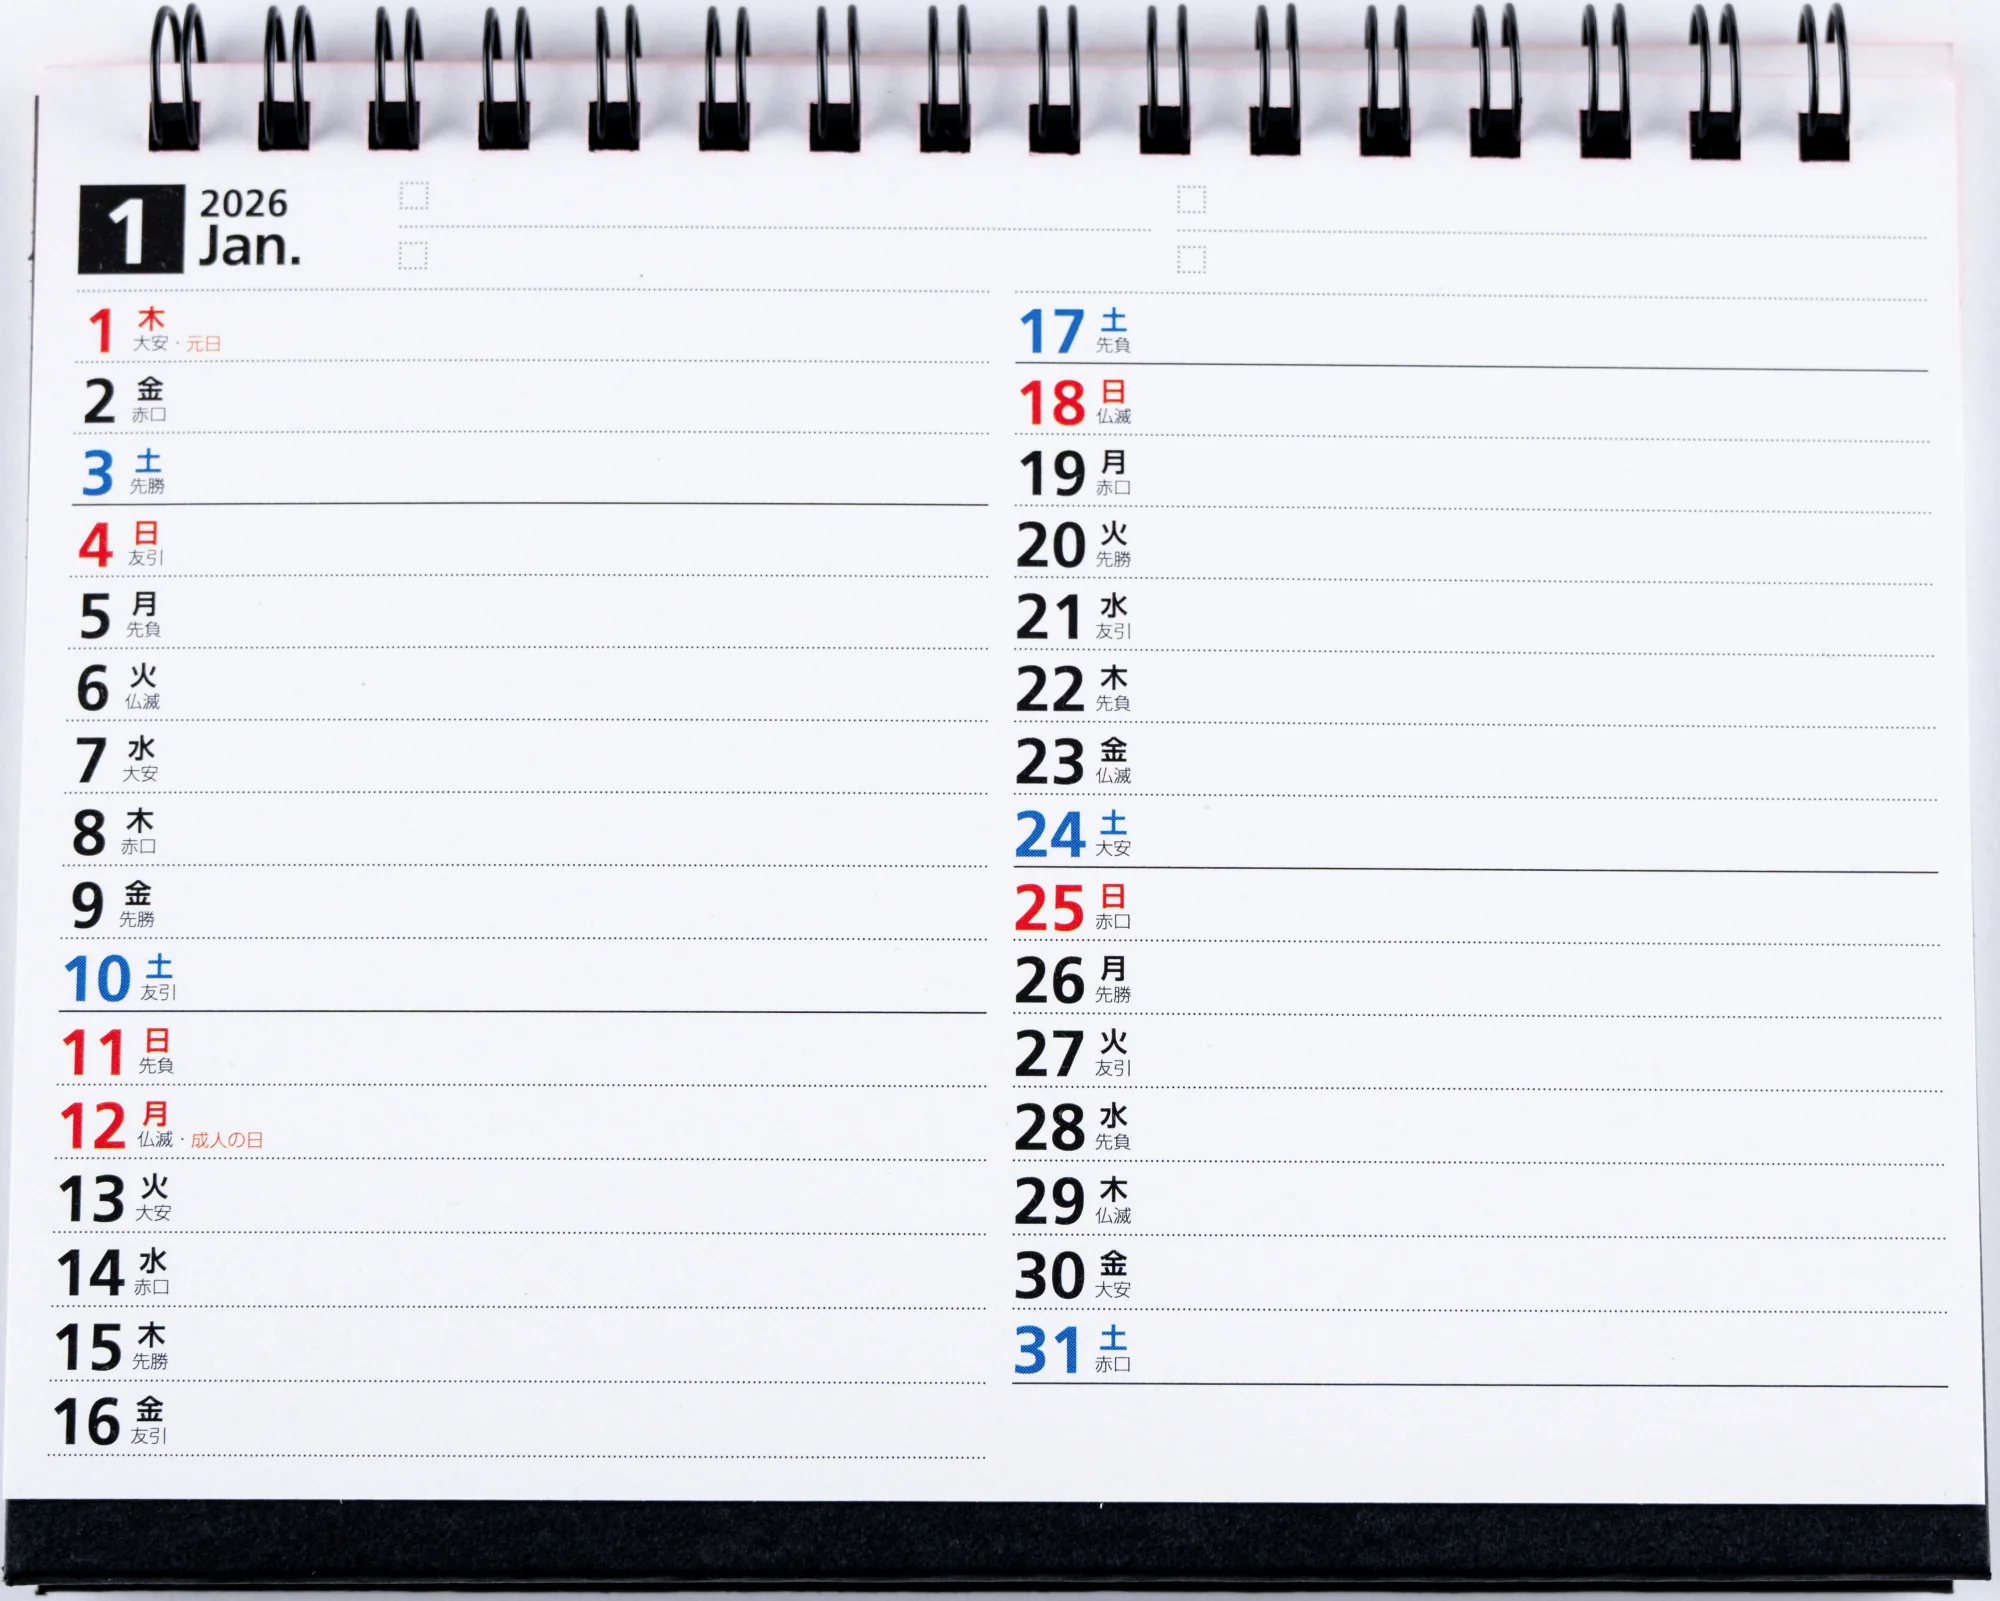 1
2026
Jan.
1 木
大安・元日
2 金
赤口
3 土
先勝
4 日
友引
5 月
先負
6 火
仏滅
7 水
大安
8 木
赤口
9 金
先勝
10 土
友引
11 日
先負
12 月
仏滅・成人の日
13 火
大安
14 水
赤口
15 木
先勝
16 金
友引
17 土
先負
18 日
仏滅
19 月
赤口
20 火
先勝
21 水
友引
22 木
先負
23 金
仏滅
24 土
大安
25 日
赤口
26 月
先勝
27 火
友引
28 水
先負
29 木
仏滅
30 金
大安
31 土
赤口